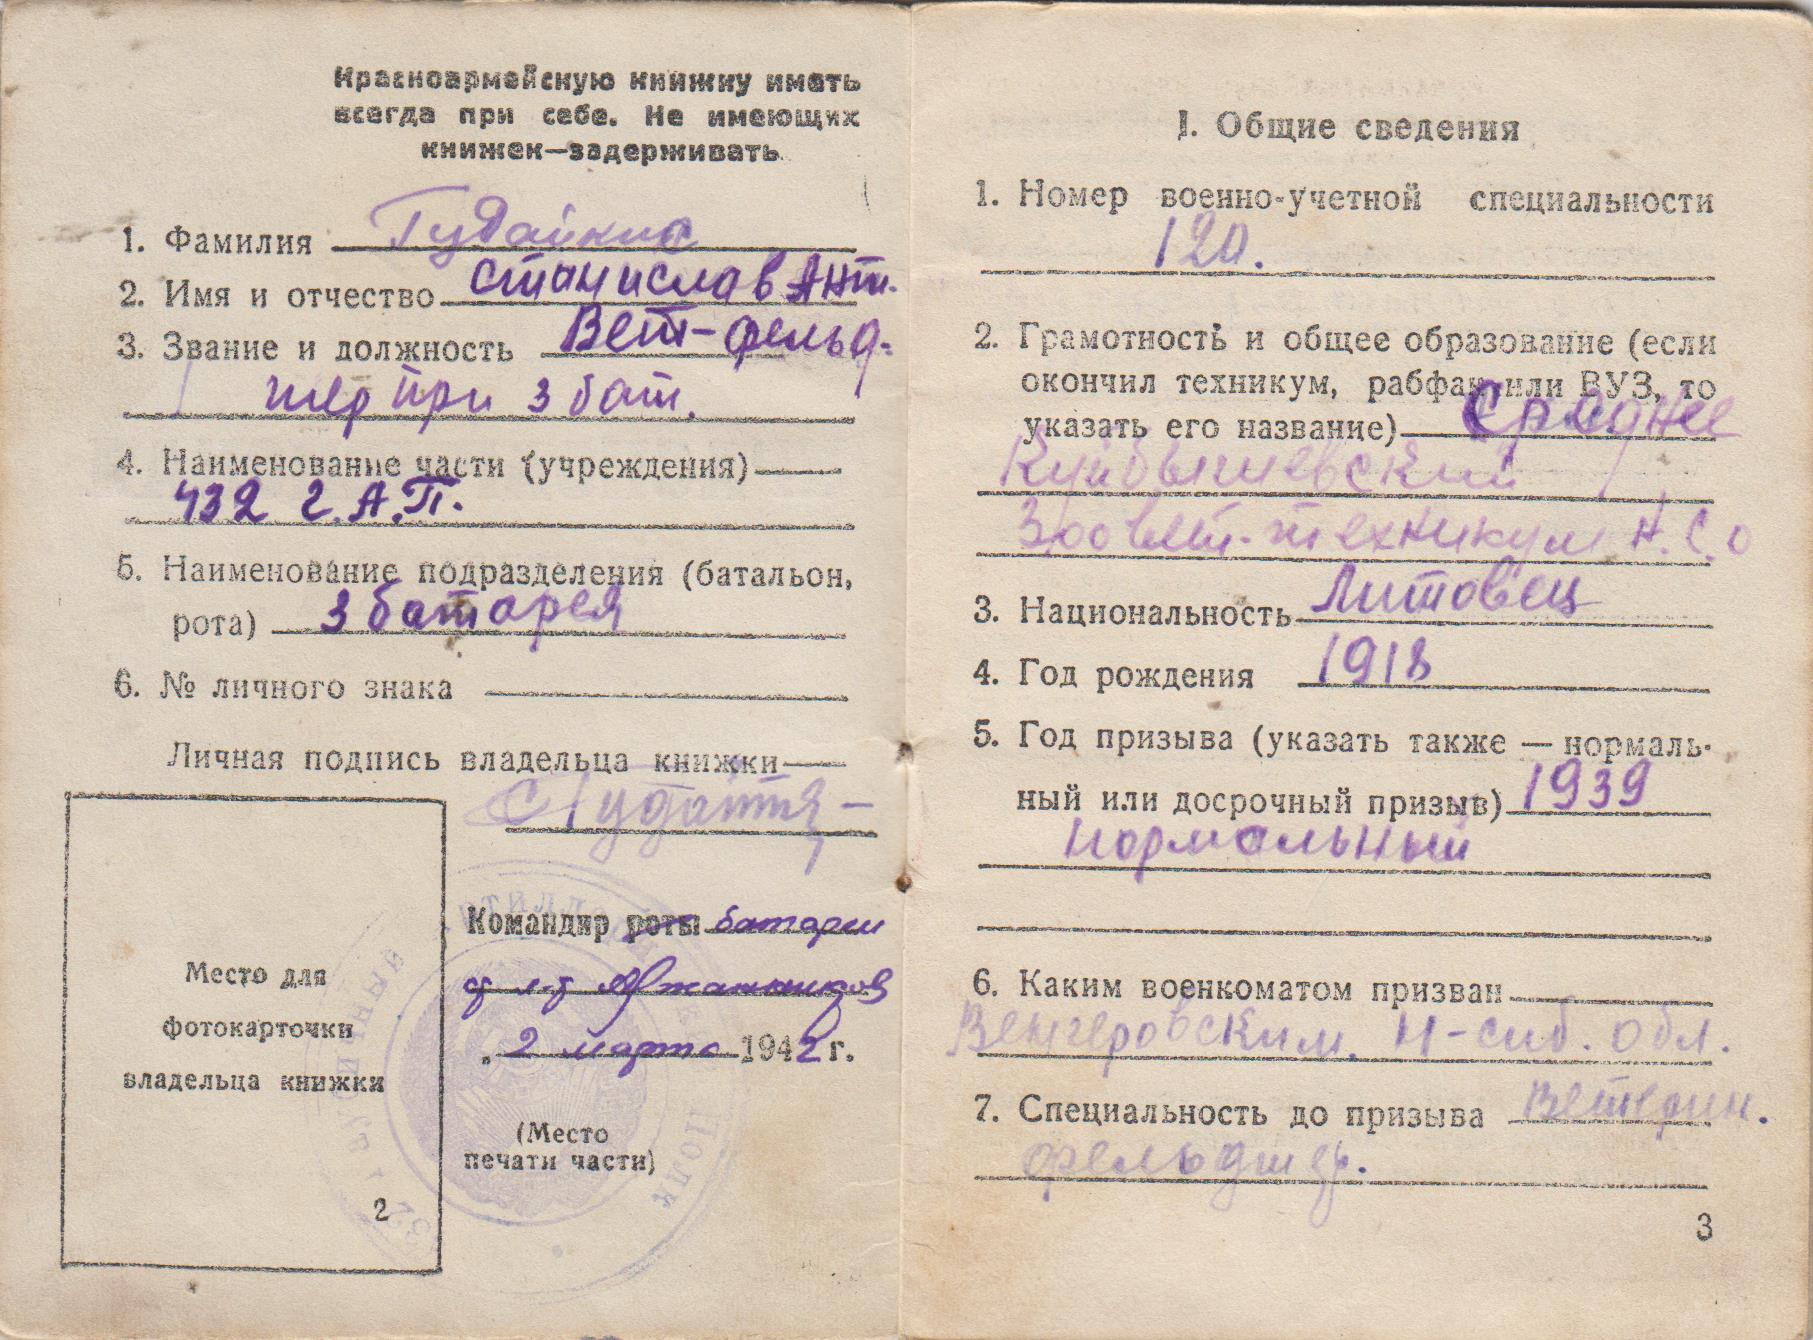 Красноармейскую книжку иметь
всегда при себе. Не имеющих
книжек—задерживать
1. Фамилия Гудайкис
2. Имя и отчество Станислав Ант.
3. Звание и должность Вет-фельд-
шер при 3 бат.
4. Наименование части (учреждения)
432 г.А.П.
5. Наименование подразделения (батальон,
рота) 3 батарея
6. № личного знака
Личная подпись владельца книжки
Место для
фотокарточки
владельца книжки
Командир роты батареи
2 марта 1942 г.
(Место
печати части)
2
I. Общие сведения
1. Номер военно-учетной специальности
120.
2. Грамотность и общее образование (если
окончил техникум, рабфак или ВУЗ, то
указать его название) Среднее
Куйбышевский
Зоовет-техникум Н.С.О
3. Национальность Литовец
4. Год рождения 1918
5. Год призыва (указать также — нормаль-
ный или досрочный призыв) 1939
нормальный
6. Каким военкоматом призван
Венгеровским. Н-сиб. обл.
7. Специальность до призыва ветерин.
фельдшер.
3